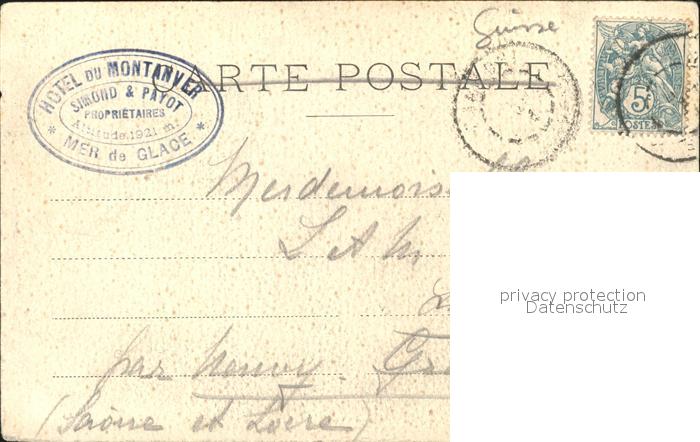 Suisse
CARTE POSTALE
HOTEL DU MONTANVER
SIMOND & PAYOT
PROPRIÉTAIRES
Altitude 1921 m.
* MER de GLACE *
5c
POSTES
Mesdemois
L A M
privacy protection
Datenschutz
par Neuvy. Gr
(Saône et Loire)